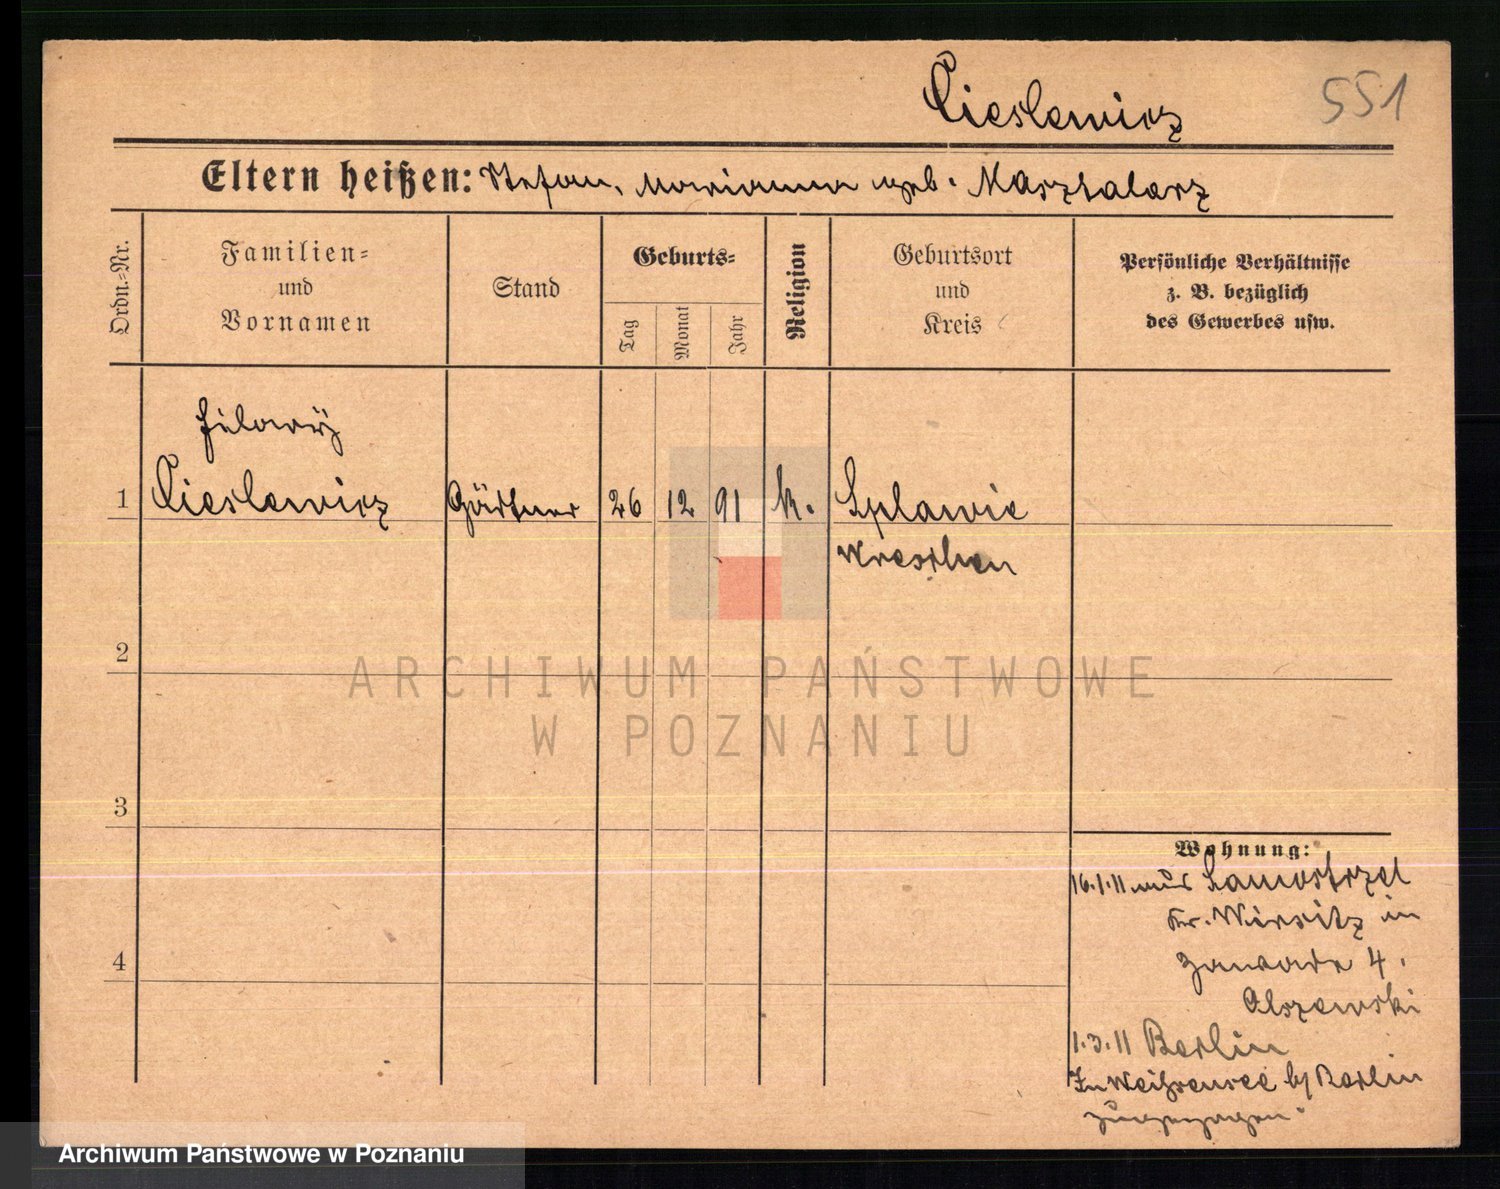 Cieslewicz
551
Eltern heißen: Stefan, Marianna geb. Marszalarz
Ordn.=Nr.
Familien=
und
Vornamen
Stand
Geburts=
Tag
Monat
Jahr
Religion
Geburtsort
und
Kreis
Persönliche Verhältnisse
z. B. bezüglich
des Gewerbes usw.
Hilary
1 Cieslewicz Gärtner 26 12 91 k. Splawie
Wreschen
2
3
4
Wohnung:
16.1.11 aus Samostrzel
Kr. Wirsitz in
Zawade 4.
Olszewski
1.3.11 Berlin
In Weißensee b/ Berlin
zugezogen.
ARCHIWUM PAŃSTWOWE
W POZNANIU
Archiwum Państwowe w Poznaniu